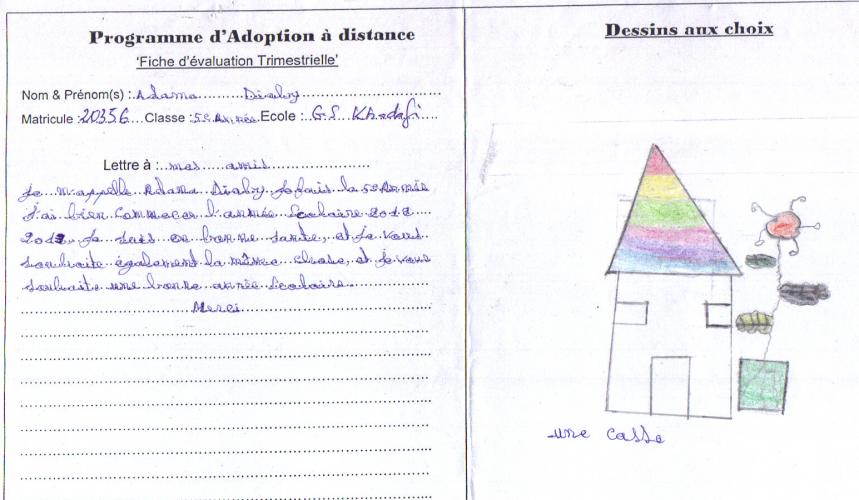 Programme d'Adoption à distance
'Fiche d'évaluation Trimestrielle'
Nom & Prénom(s) : Adama Diaby
Matricule : 20356 Classe : 5e Année Ecole : G.S Khadafi
Lettre à : mes amis
Je m'appelle Adama Diaby Je fais la 5e Année
J'ai bien commecer l'année Scolaire 2012
Je suis en bonne sante, et Je vous
souhaite également la même chose, et Je vous
souhaite une bonne année Scolaire
Merci
Dessins aux choix
une casse